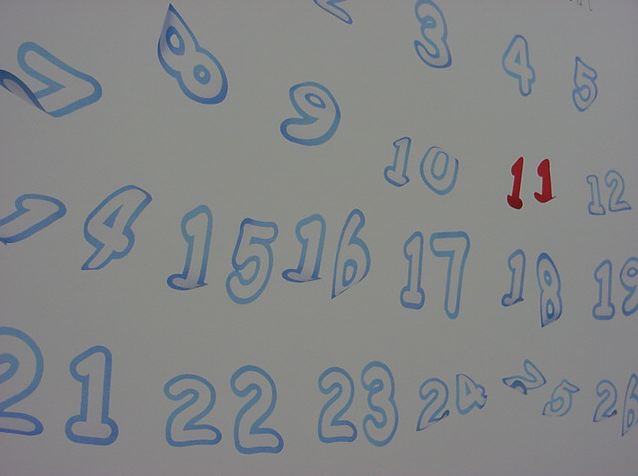 3 4 5
7 8 9 10 11 12
14 15 16 17 18 19
21 22 23 24 25 26